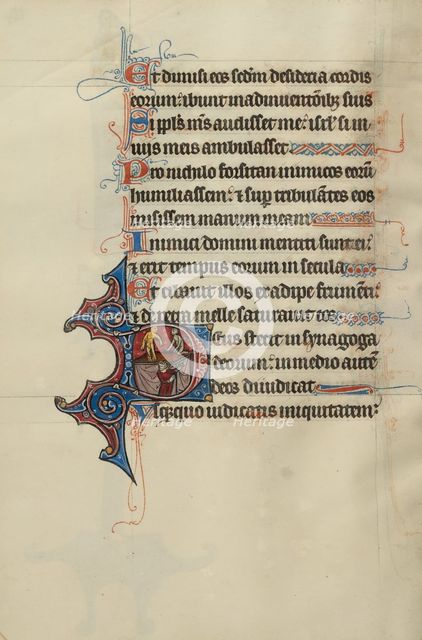 Et dimisi eos sedm desideria cordis
eorum: ibunt in adinventōibꝫ suis
Si ipls ms audisset me: isrl si in
viis meis ambulasset
Pro nichilo forsitan inimicos eorū
humiliassem: et sup tribulātes eos
misissem manum meam
Inimici domini mentiti sunt ei:
et erit tempus eorum in secula
Et cibavit illos ex adipe frumenti:
et de petra melle saturavit eos
Deus stetit in synagoga
deorum: in medio autē
deos diiudicat
Usquequo iudicatis iniquitatem:
Heritage
Heritage
Heritage
Heritage
Heritage
Heritage